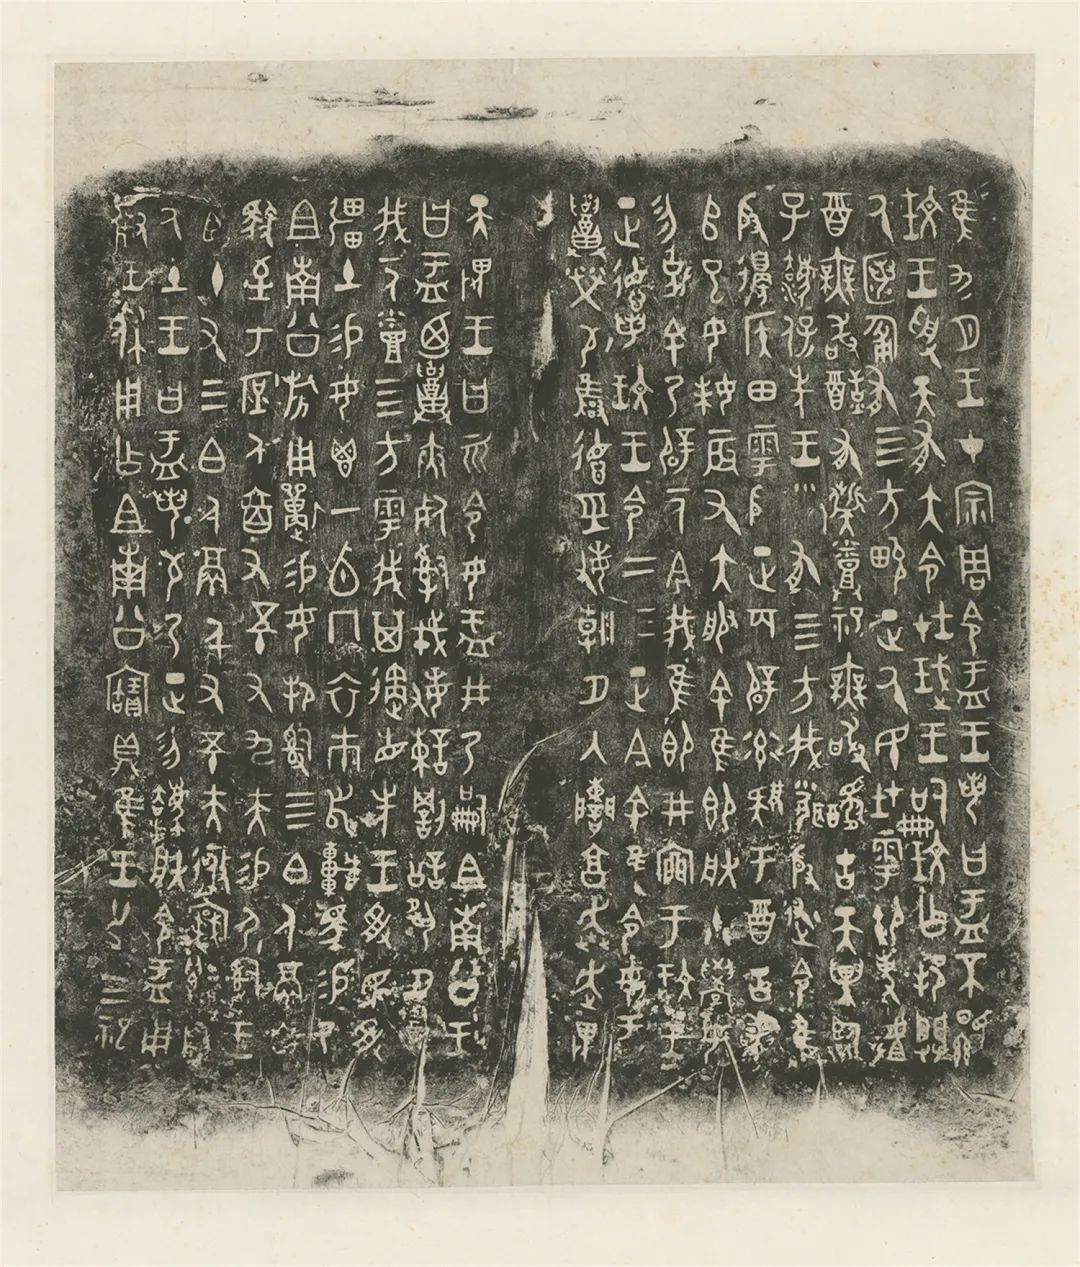 隹九月王才宗周令盂王若曰盂不顯
玟王受天有大令在珷王嗣玟乍邦闢
厥匿匍有四方畯正厥民在雩御事𠭯
酉無敢酖有祡烝祀無敢𨢩古天異臨
子灋保先王有四方我聞殷述令隹
殷邊侯田雩殷正百辟率肄于酉古喪
𠂤巳女妹辰又大服余隹即朕小學女
勿剋余乃辟一人今我隹即井㐭于玟王
正德若玟王令二三正今余隹令女盂
召榮敬雝德巠敏朝夕入讕享奔走畏
天畏王曰𠀠令女盂井乃嗣且南公王
曰盂廼召夾死𤔲戎敏諫罰訟夙夕召
我一人烝四方雩我其遹省先王受民受
疆土易女鬯一卣冂衣巿舄車馬易乃
且南公旂用遟易女邦𤔲四白人鬲自
馭至于庶人六百又五十又九夫易尸𤔲王
臣十又三白人鬲千又五十夫遷自
厥土王曰盂若敬乃正勿灋朕令盂用
對王休用乍且南公寶鼎隹王廿又三祀